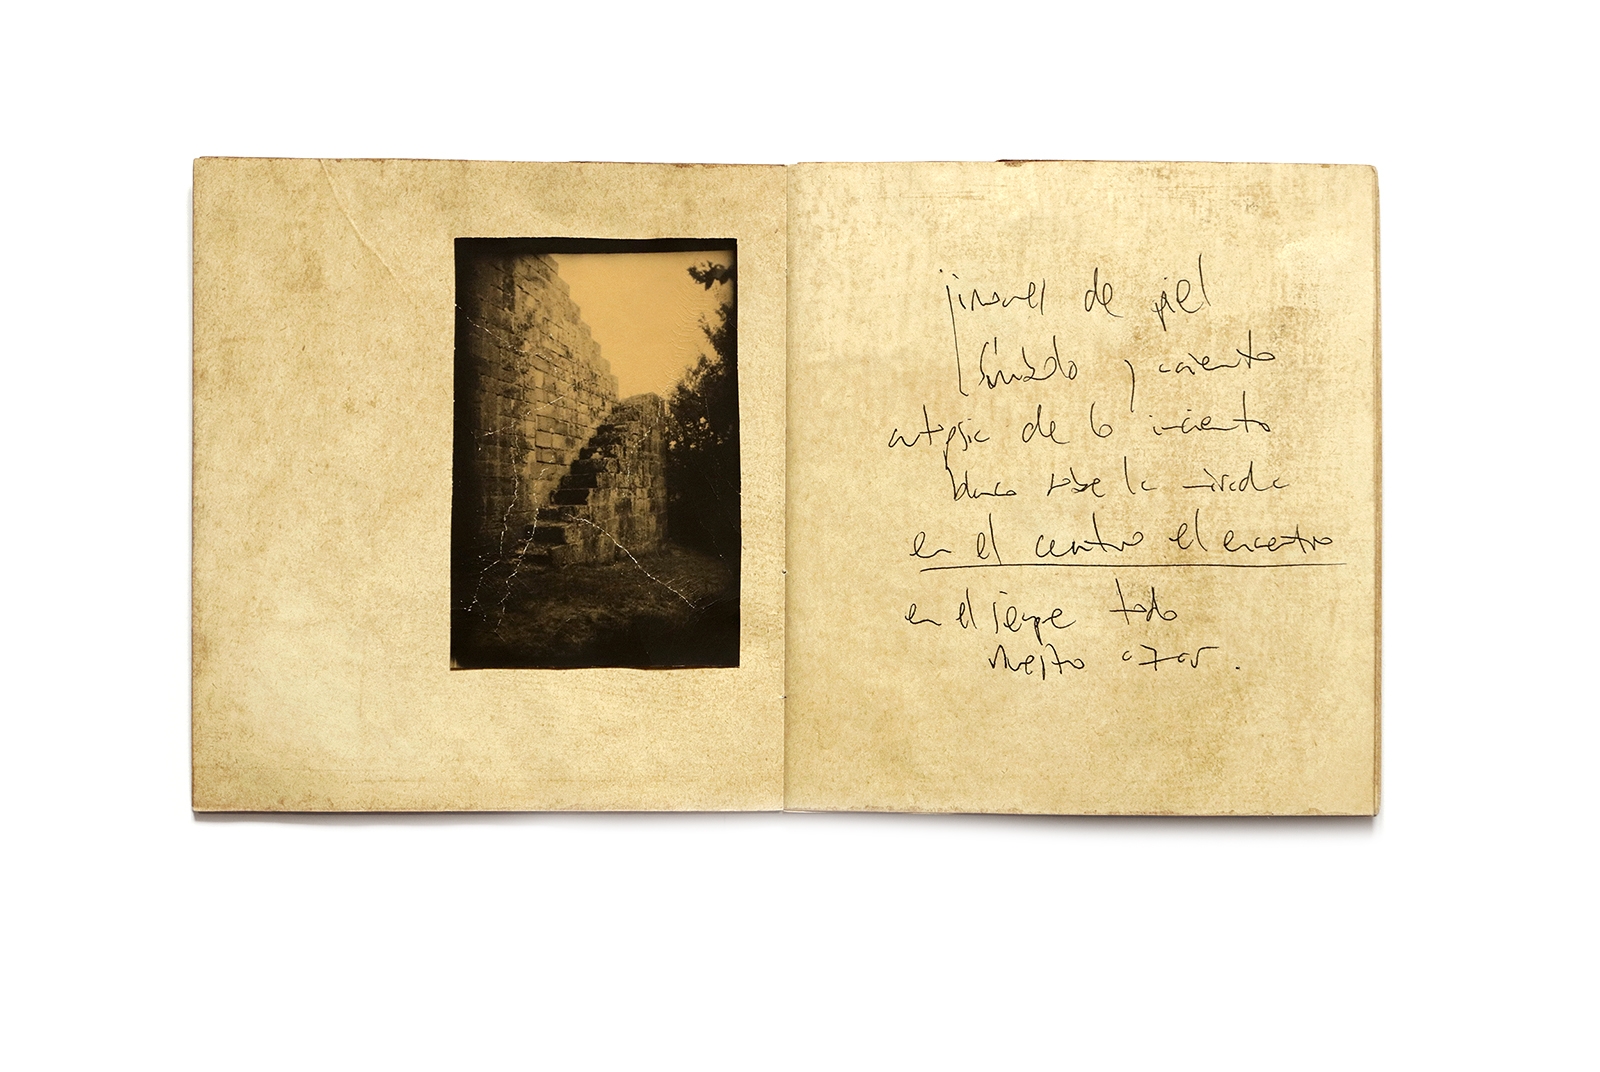 jirones de piel
símbolo y
autopsia de lo incierto
blanco sobre la mirada
en el centro el encuentro
en el siempre todo
nuestro azar.